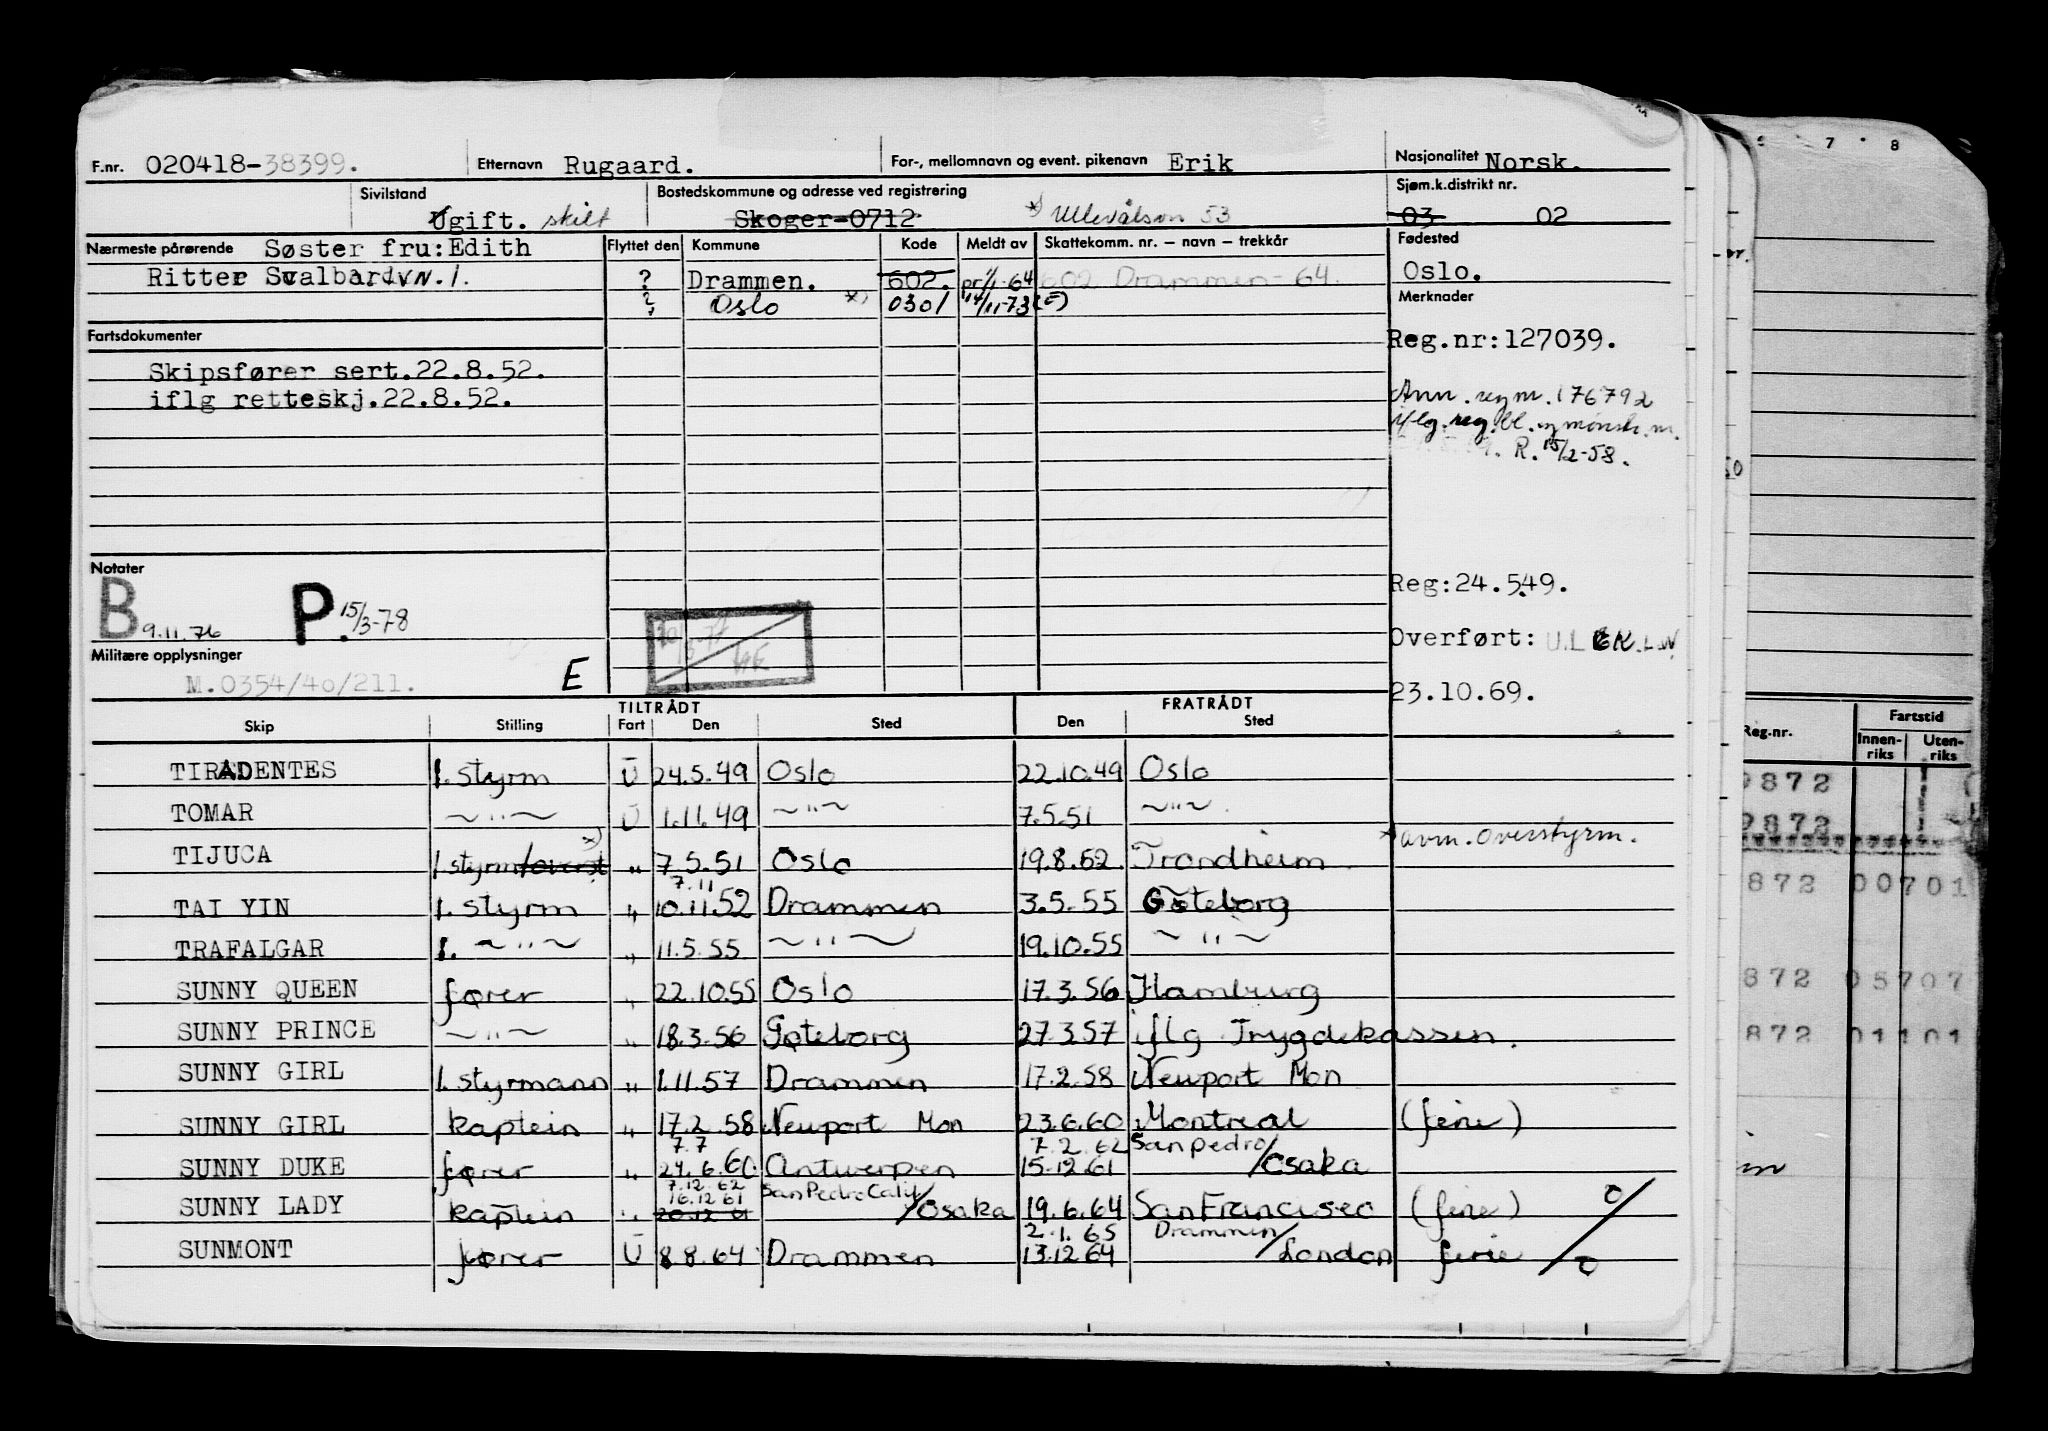 F.nr. 020418-38399.
Etternavn Rugaard.
For-, mellomnavn og event. pikenavn Erik
Nasjonalitet Norsk.
Sivilstand
Ugift. skilt
Bostedskommune og adresse ved registrering
Skoger-0712 *) Ullevålsvn 53
Sjøm.k.distrikt nr.
03 02
Nærmeste pårørende Søster fru:Edith
Ritter Svalbardvn. 1.
Flyttet den Kommune Kode Meldt av Skattekomm. nr. – navn – trekkår
? Drammen. 602. pr 1/1-64 602 Drammen-64.
? Oslo *) 0301 14/11-73 (E)
Fødested
Oslo.
Merknader
Reg.nr:127039.
Ann. reg nr. 176792
iflg. reg. bl. og mønstr. m.
R. 15/2-58.
Fartsdokumenter
Skipsfører sert.22.8.52.
iflg retteskj.22.8.52.
Notater
B 9.11.76 P. 15/3-78
Reg:24.5.49.
Overført:
23.10.69.
Militære opplysninger
M.0354/40/211. E
TILTRÅDT FRATRÅDT
Skip Stilling Fart Den Sted Den Sted
TIRADENTES 1. styrm U 24.5.49 Oslo 22.10.49 Oslo
TOMAR ~ " ~ U 1.11.49 ~ " ~ 7.5.51 ~ " ~
TIJUCA 1. styrm/overst *) " 7.5.51 Oslo 19.8.52. Trondheim * avm. overstyrm.
7.11
TAI YIN 1. styrm " 10.11.52 Drammen 3.5.55 Gøteborg
TRAFALGAR 1. ~ " ~ " 11.5.55 ~ " ~ 19.10.55 ~ " ~
SUNNY QUEEN fører " 22.10.55 Oslo 17.3.56 Hamburg
SUNNY PRINCE ~ " ~ " 18.3.56 Gøteborg 27.3.57 iflg Trygdekassen.
SUNNY GIRL 1. styrmann " 1.11.57 Drammen 17.2.58 Newport Mon
SUNNY GIRL kaptein " 17.2.58 Newport Mon 23.6.60 Montreal (ferie)
7.7 7.2.62 San Pedro/
SUNNY DUKE fører " 24.6.60. Antwerpen 15.12.61 Osaka
7.12.62
16.12.61 San Pedro Calif/
SUNNY LADY kaptein " 20.12.61 Osaka 19.6.64 San Francisco (ferie)
2.1.65 Drammen/
SUNMONT fører U 8.8.64 Drammen 13.12.64 London ferie
7 8
Reg.nr. Fartstid
Innen-riks Uten-riks
9872
9872
872 00701
872 05707
872 01101